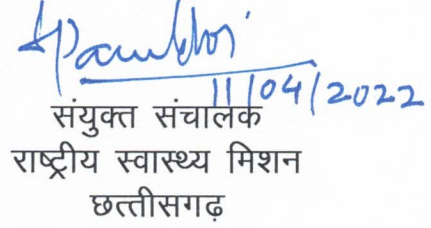 11/04/2022
संयुक्त संचालक
राष्ट्रीय स्वास्थ्य मिशन
छत्तीसगढ़